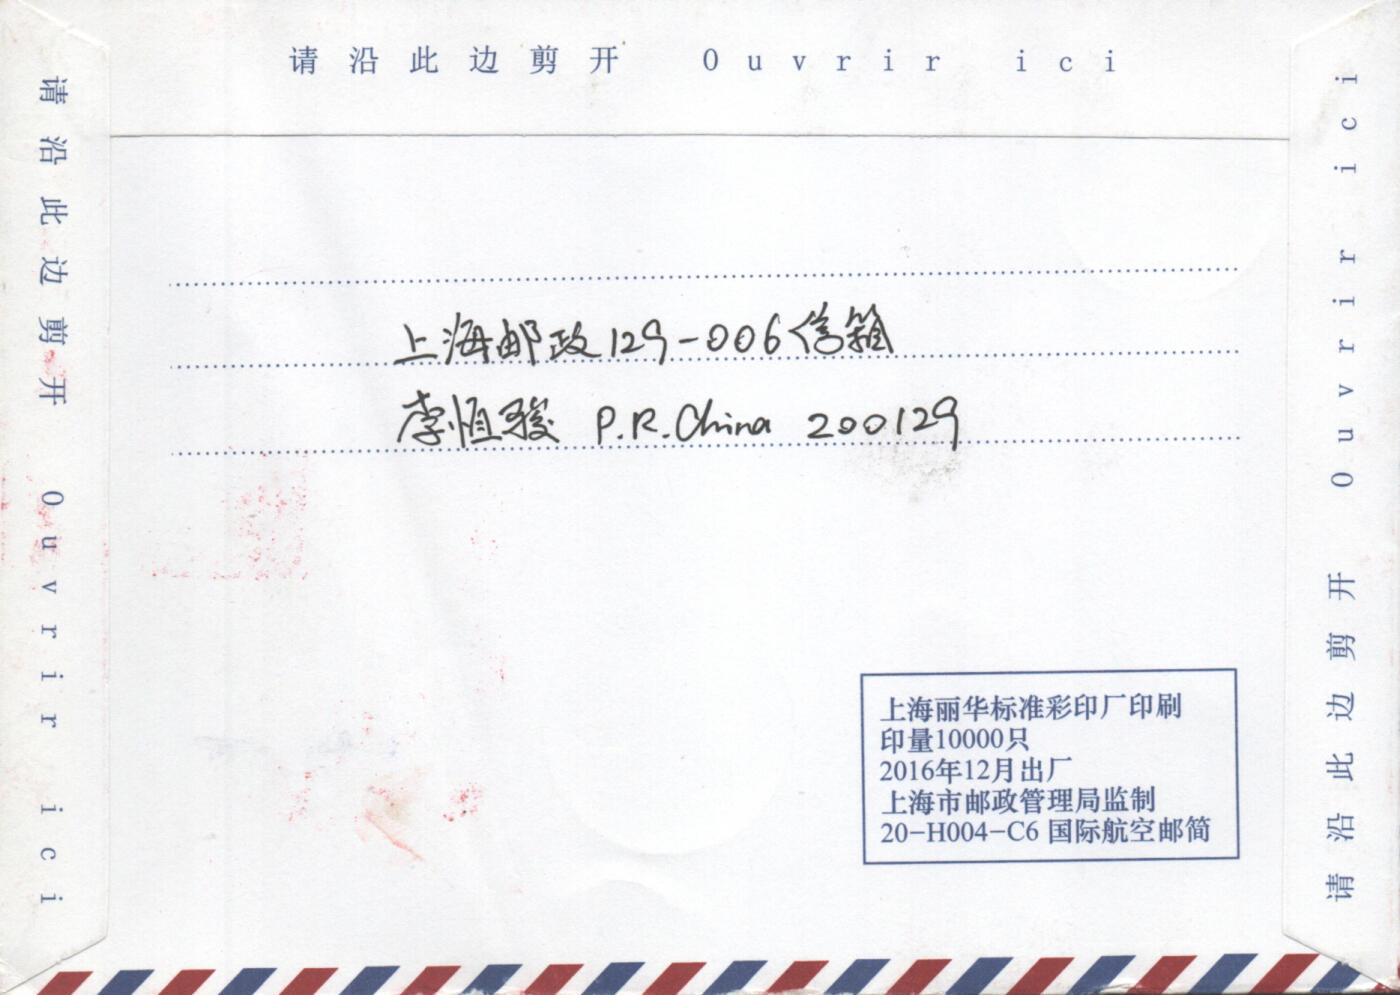 请沿此边剪开 Ouvrir ici
请沿此边剪开 Ouvrir ici
上海邮政129-006信箱
李恒骏 P.R.China 200129
上海丽华标准彩印厂印刷
印量10000只
2016年12月出厂
上海市邮政管理局监制
20-H004-C6 国际航空邮简
请沿此边剪开 Ouvrir ici